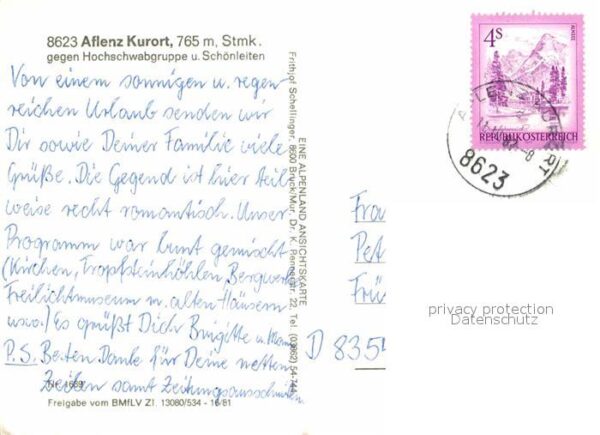 8623 Aflenz Kurort, 765 m, Stmk.
gegen Hochschwabgruppe u. Schönleiten
Von einem sonnigen u. regen
reichen Urlaub senden wir
Dir sowie Deiner Familie viele
Grüße. Die Gegend ist hier teil
weise recht romantisch. Unser
Programm war bunt gemischt
(Kirchen, Tropfsteinhöhlen, Bergwerk
Freilichtmuseum m. alten Häusern
usw.) Es grüßt Dich Brigitte u.
P.S. Besten Danke für Deine netten
Zeilen samt Zeitungsausschnitten
Nr. 1689
Freigabe vom BMfLV Zl. 13080/534 - 16/81
Frithjof Scheflinger, 8600 Bruck/Mur, Dr. K. Rennerstr. 22, Tel. (03862) 54-744
EINE ALPENLAND ANSICHTSKARTE
4S
ALMSEE
REPUBLIK ÖSTERREICH
8623
Fra
Pet
Frü
D 835
privacy protection
Datenschutz